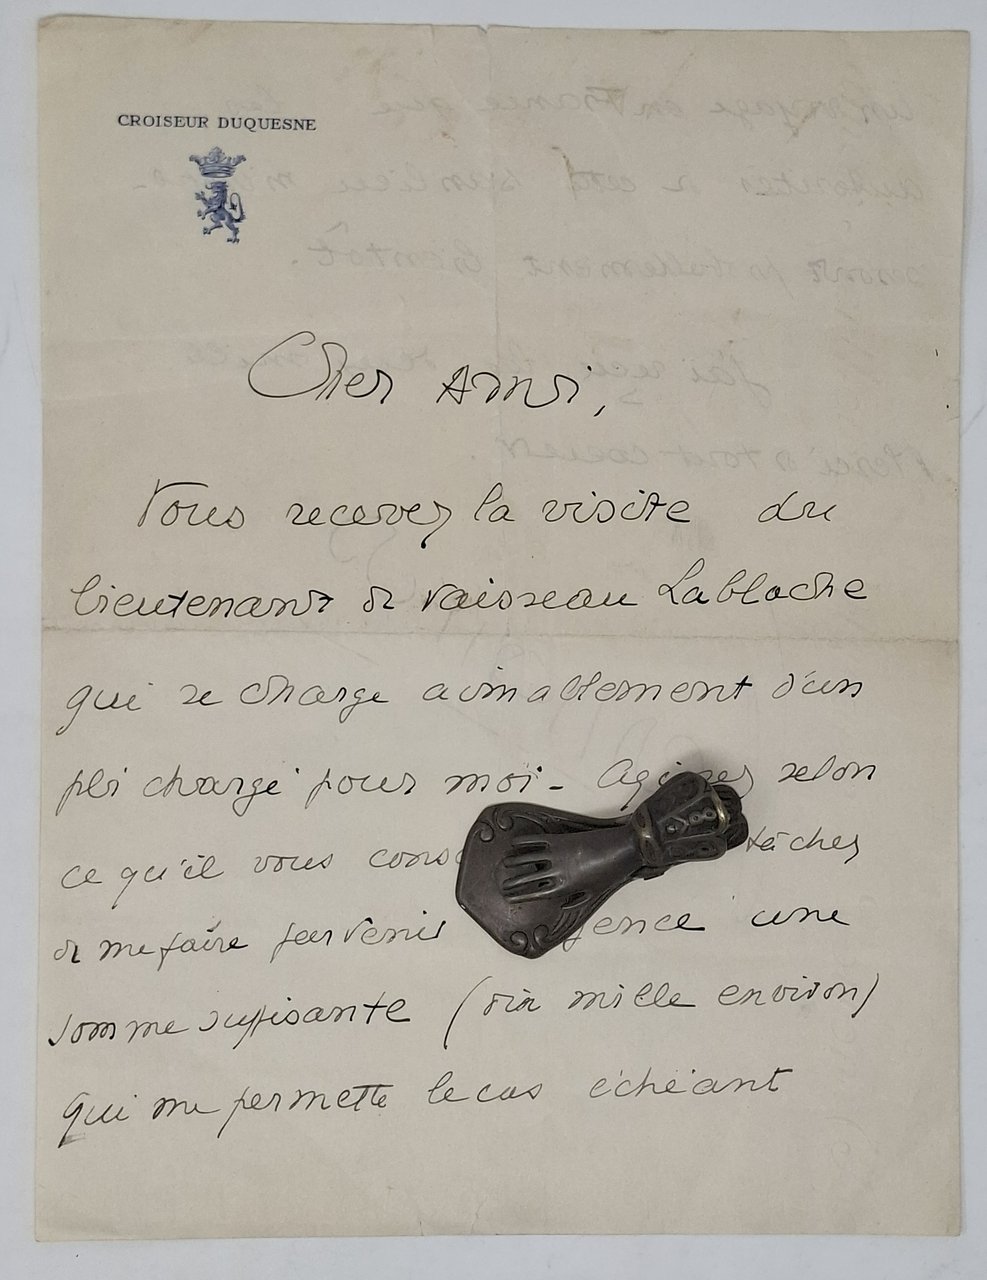 CROISEUR DUQUESNE
Cher Ami,
Vous recevez la visite du
lieutenant de vaisseau Lablache
qui se charge aimablement d'un
pli chargé pour moi - selon
ce qu'il vous tâchez
de me faire parvenir une
somme suffisante (dix mille environ)
qui me permette le cas échéant